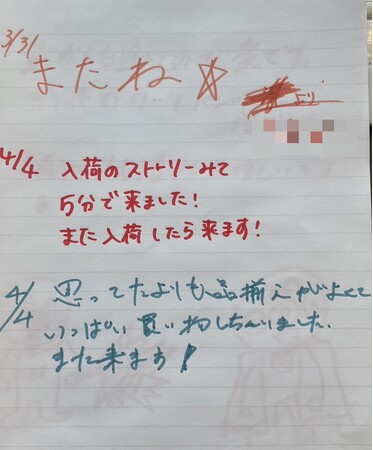 3/31
またね☆
より
4/4 入荷のストーリーみて
5分で来ました!
また入荷したら来ます!
4/4 思ってたよりも品揃えがよくて
いっぱい買い物しちゃいました.
また来ます!